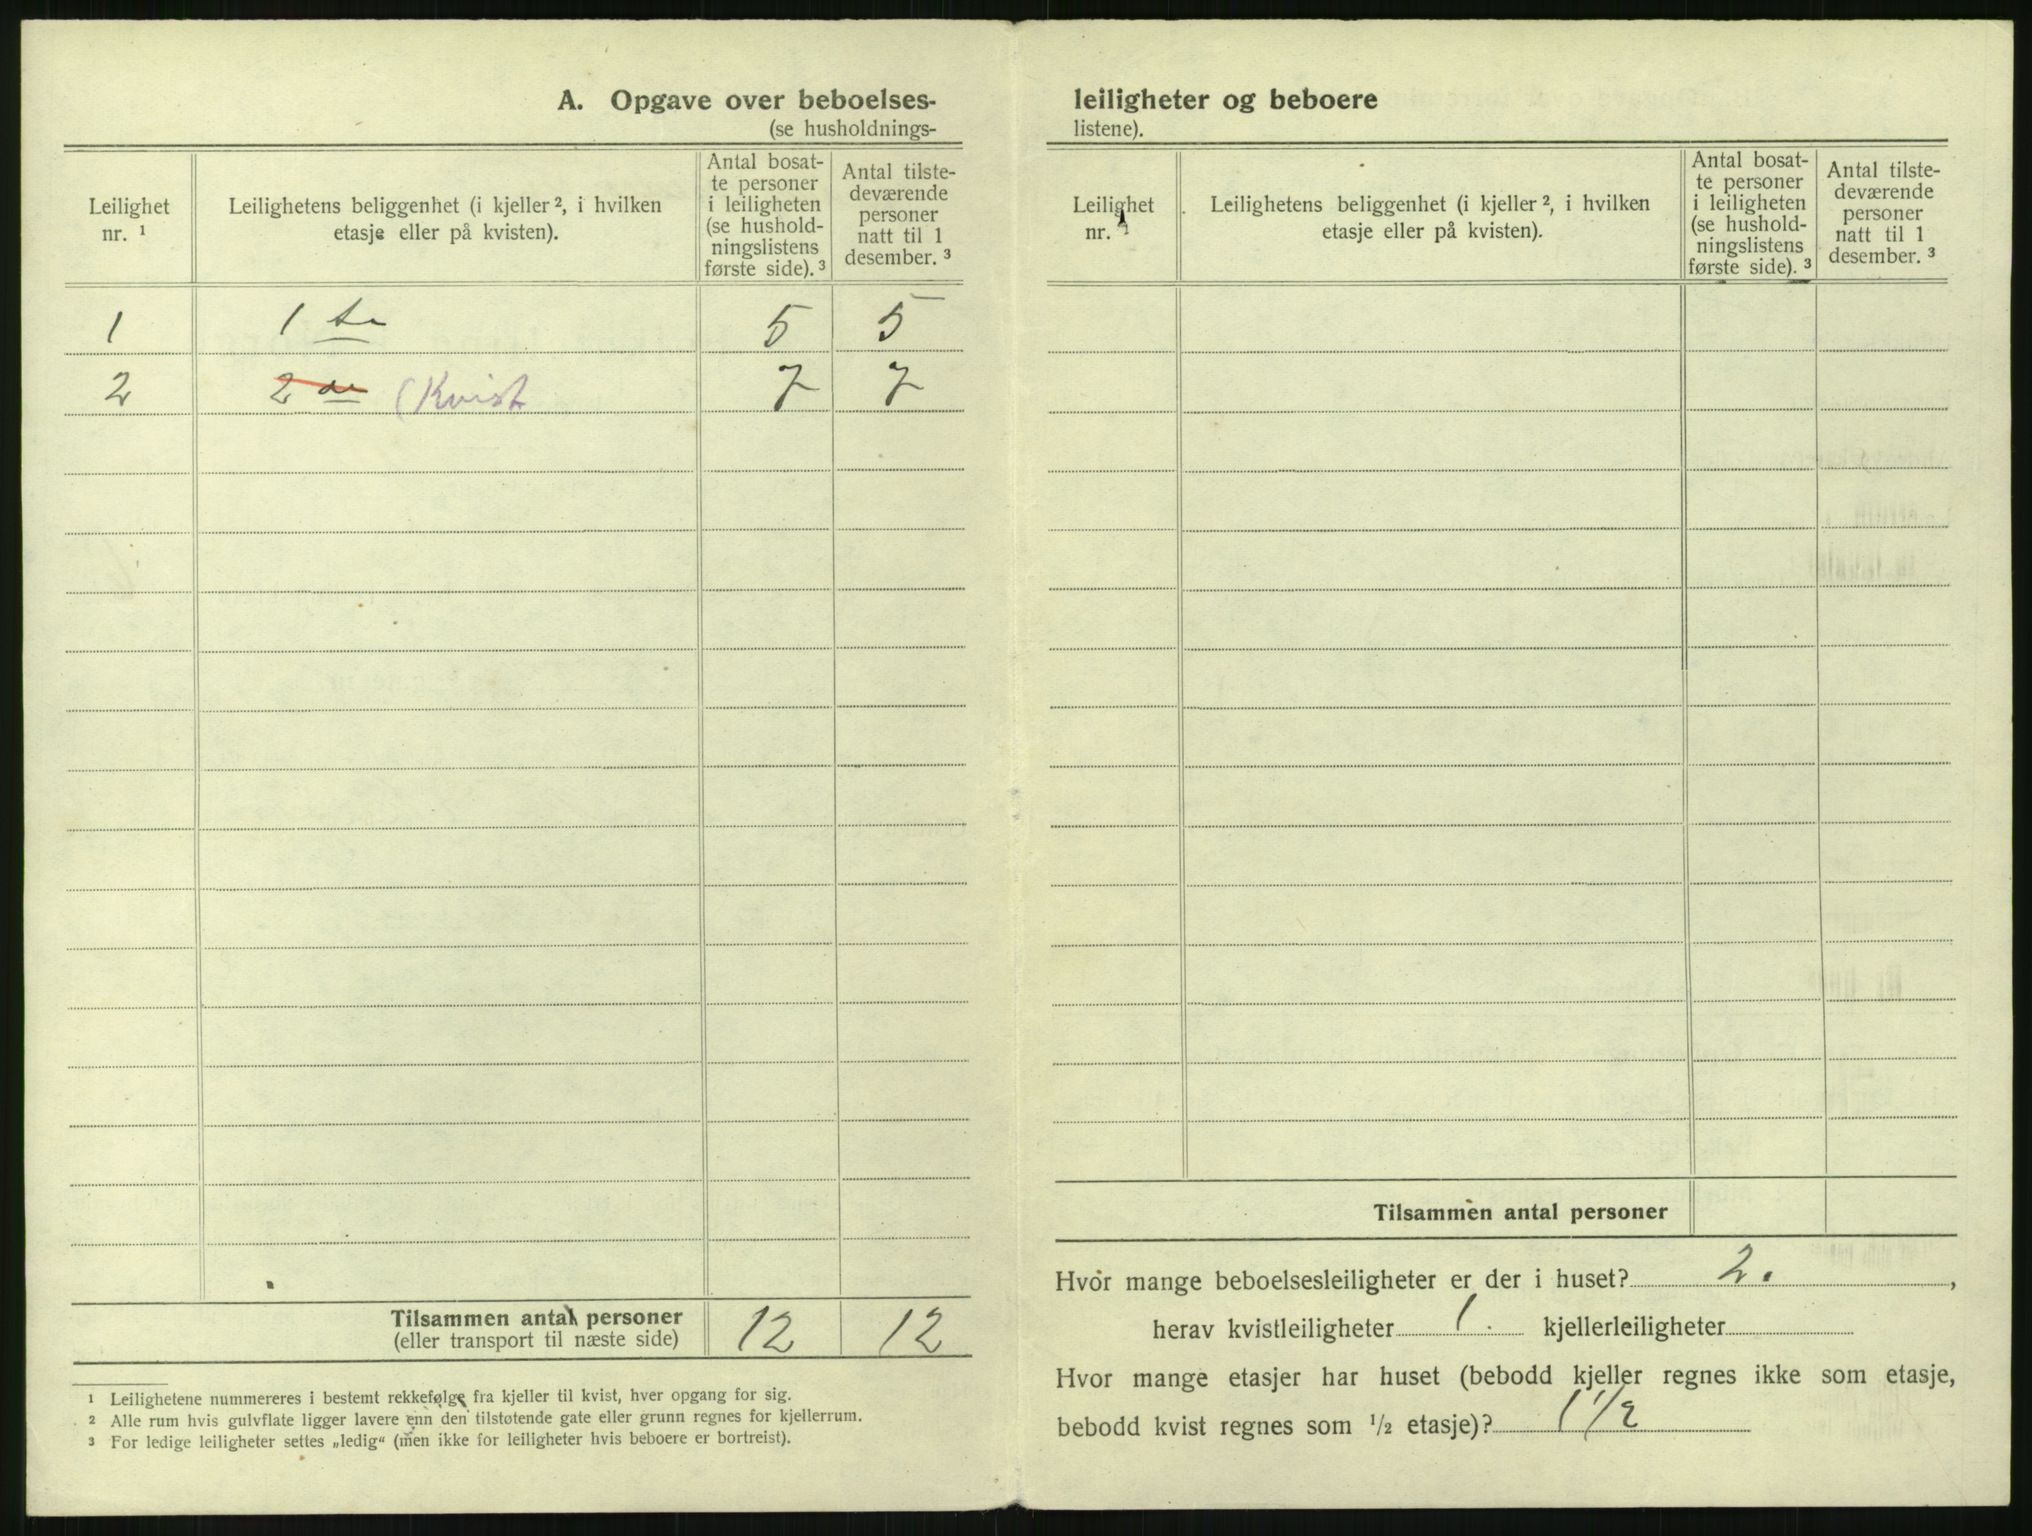 A. Opgave over beboelses-
(se husholdnings-
Leilighet nr. ¹
Leilighetens beliggenhet (i kjeller ², i hvilken etasje eller på kvisten).
Antal bosat-
te personer
i leiligheten
(se hushold-
ningslistens
første side). ³
Antal tilste-
deværende
personer
natt til 1
desember. ³
1 1 ste 5 5
2 2 de (Kvist 7 7
Tilsammen antal personer 12 12
(eller transport til næste side)
¹ Leilighetene nummereres i bestemt rekkefølge fra kjeller til kvist, hver opgang for sig.
² Alle rum hvis gulvflate ligger lavere enn den tilstøtende gate eller grunn regnes for kjellerrum.
³ For ledige leiligheter settes „ledig“ (men ikke for leiligheter hvis beboere er bortreist).
leiligheter og beboere
listene).
Leilighet nr. ¹
Leilighetens beliggenhet (i kjeller ², i hvilken etasje eller på kvisten).
Antal bosat-
te personer
i leiligheten
(se hushold-
ningslistens
første side). ³
Antal tilste-
deværende
personer
natt til 1
desember. ³
Tilsammen antal personer
Hvor mange beboelsesleiligheter er der i huset? 2. ,
herav kvistleiligheter 1. kjellerleiligheter
Hvor mange etasjer har huset (bebodd kjeller regnes ikke som etasje,
bebodd kvist regnes som ½ etasje)? 1 1/2